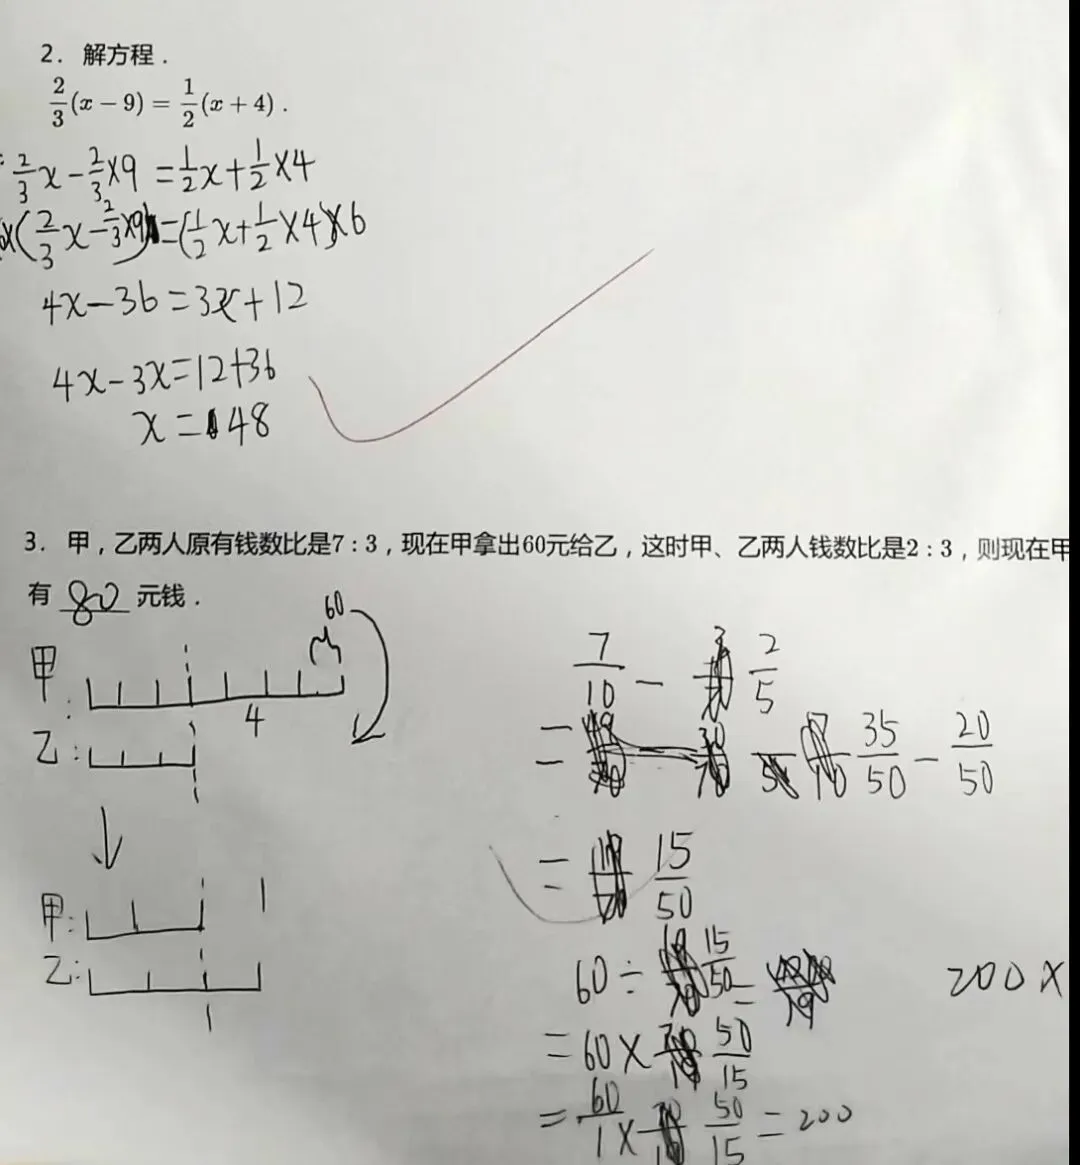 2. 解方程.
2/3(x-9)=1/2(x+4).
2/3x-2/3×9=1/2x+1/2×4
(2/3x-2/3×9)=(1/2x+1/2×4)×6
4x-36=3x+12
4x-3x=12+36
x=48
3. 甲,乙两人原有钱数比是7:3,现在甲拿出60元给乙,这时甲、乙两人钱数比是2:3,则现在甲
有 80 元钱.
60
甲:
4
乙:
甲: 1
乙:
1
7/10 - 2/5
= 35/50 - 20/50
= 15/50
60÷15/50=
200×
=60×50/15
=60/1×50/15=200